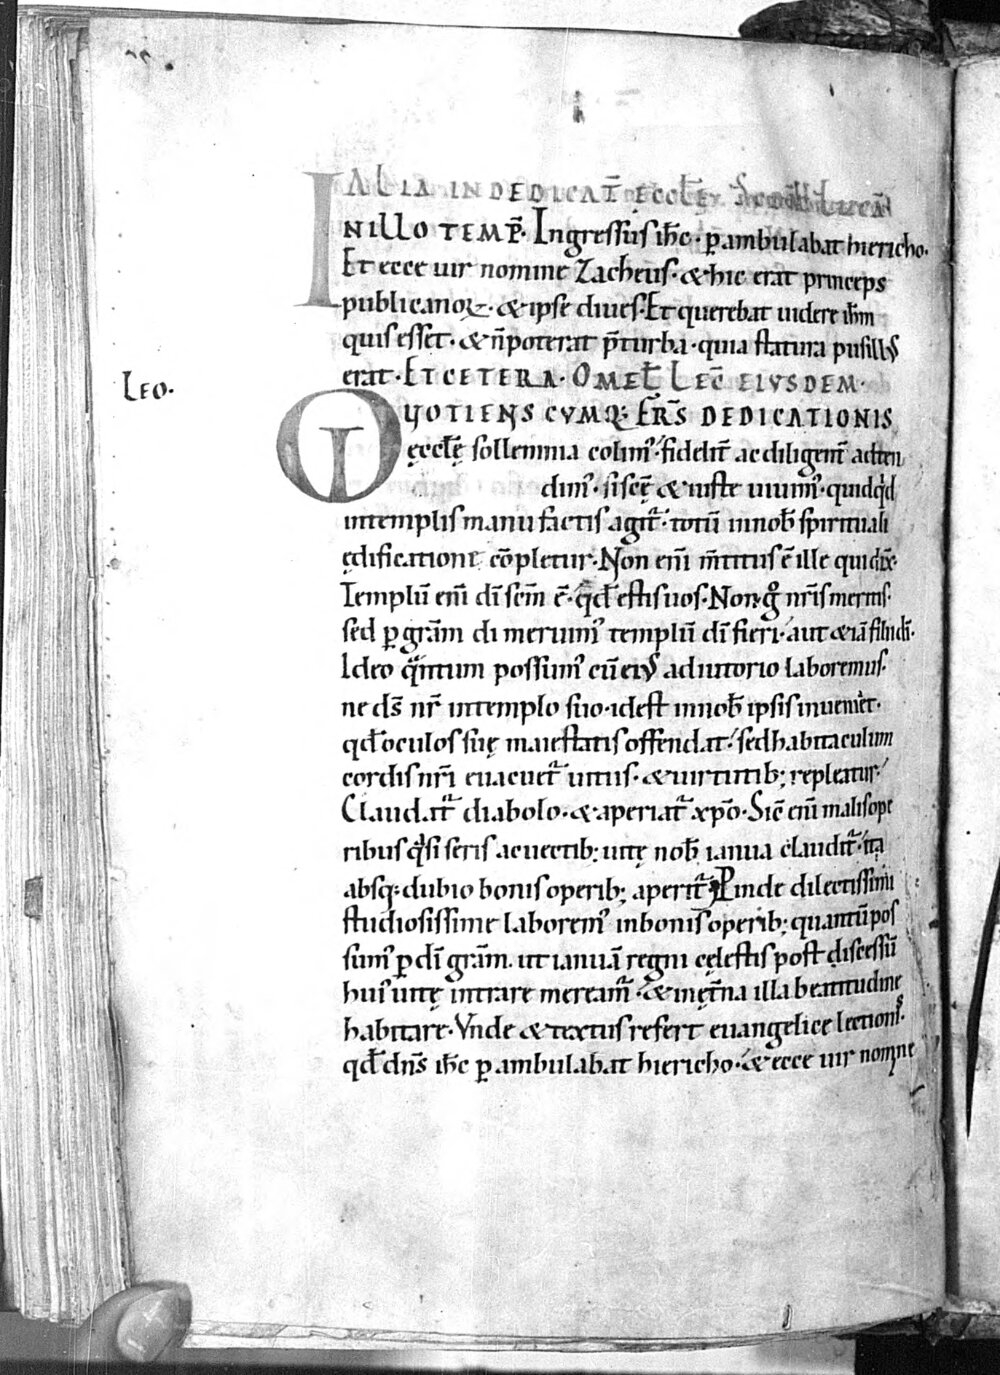 ALIA IN DEDICAT̄ ECCL̄Ę Scdm̄ Lucā
IN ILLO TEMP̄. Ingressus ih̄c ꝑambulabat hiericho.
Et ecce uir nomine Zacheus. & hic erat princeps
publicanoꝝ. & ipse diues. Et querebat uidere ih̄m
quis esset. & n̄ poterat p̄ turba. quia statura pusill᷒
erat. ET CETERA. OMEL̄ LEC̄ EIVSDEM.
Leo.
QVOTIENS CVMQ; FR̄S DEDICATIONIS
ęccl̄ę sollemnia colim᷒. fidelit̄ ac diligent̄ adten
dim᷒. si sc̄ę & iuste uiuim᷒. quidqđ
in templis manu factis agit᷑. totū in nob̄ spirituali
ędificatione cōpletur. Non eni̅ m̄titus ē ille qui dix̄.
Templū eni̅ dī sc̄m ē. qđ estis uos. Non gͦ nr̄is meritis.
sed ꝑ grām dī meruim᷒ templū dī fieri. aut & iā filii dī.
Ideo qͣntum possum᷒ cū ei᷒ adiutorio laboremus.
ne dś nr̄ in templo suo. id est in nob̄ ipsis inueniet.
qđ oculos suę maiestatis offendat. sed habitaculum
cordis nr̄i euacuet᷑ uitiis. & uirtutib; repleatur.
Claudat᷑ diabolo. & aperiat᷑ xp̄o. Sic̄ eni̅ malis ope
ribus qͣsi seris ac uectib; uitę nob̄ ianua claudit᷑. ita
absq; dubio bonis operib; aperit᷑. Proinde dilectissimi
studiosissime laborem᷒ in bonis operib; quantū pos
sum᷒ ꝑ dī grām. ut ianuā regni cęlestis post discessū
hui᷒ uitę intrare meream᷑. & in ęt̄na illa beatitudine
habitare. Vnde & textus refert euangelicę lectionis.
qđ dn̄s ih̄c ꝑambulabat hiericho. & ecce uir nomine